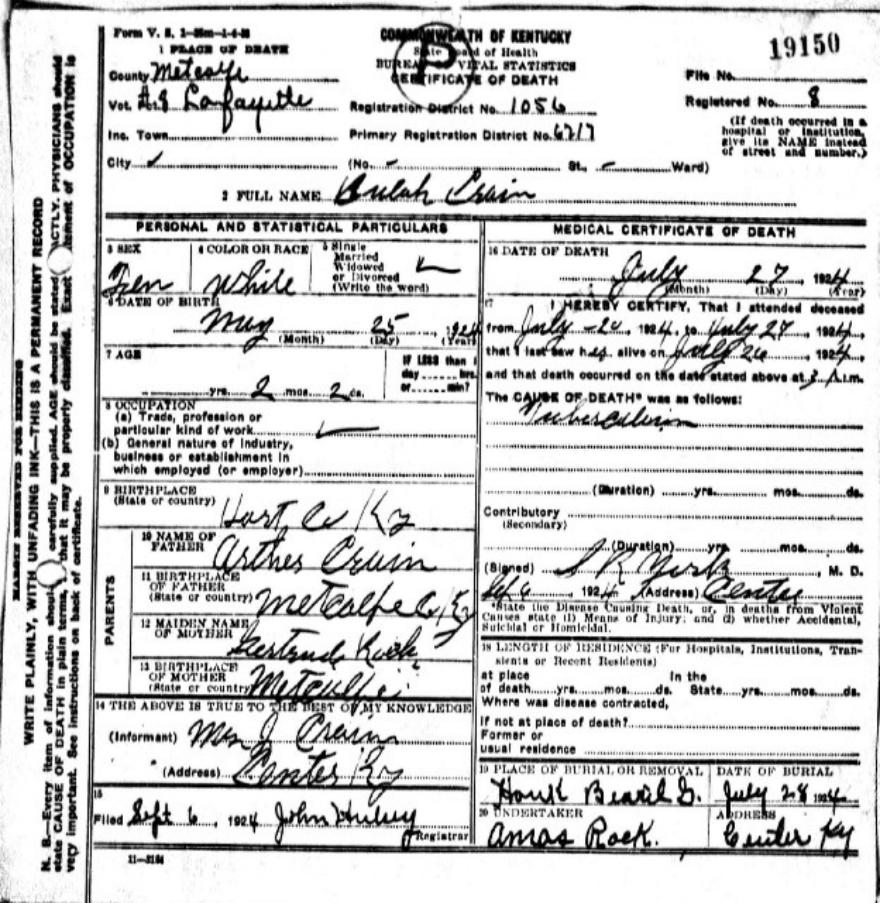 Form V. S. 1-35m-1-4-24
COMMONWEALTH OF KENTUCKY
State Board of Health
BUREAU VITAL STATISTICS
CERTIFICATE OF DEATH
19150
1 PLACE OF DEATH
County Metcalfe
Vot. Lafayette
Inc. Town
City
Registration District No. 1056
Primary Registration District No. 6217
(No. - St., - Ward)
File No.
Registered No. 8
(If death occurred in a
hospital or institution,
give its NAME instead
of street and number.)
2 FULL NAME Bulah Crain
PERSONAL AND STATISTICAL PARTICULARS
3 SEX
Fem
4 COLOR OR RACE
White
5 Single
Married
Widowed
or Divorced
(Write the word)
6 DATE OF BIRTH
May 25, 1924
(Month) (Day) (Year)
7 AGE
yrs. 2 mos. 2 ds.
IF LESS than 1
day hrs.
or min?
8 OCCUPATION
(a) Trade, profession or
particular kind of work
(b) General nature of Industry,
business or establishment in
which employed (or employer)
9 BIRTHPLACE
(State or country) Hart Co Ky
PARENTS
10 NAME OF
FATHER Arther Crain
11 BIRTHPLACE
OF FATHER
(State or country) Metcalfe Co Ky
12 MAIDEN NAME
OF MOTHER Gertrude Rock
13 BIRTHPLACE
OF MOTHER
(State or country) Metcalfe
14 THE ABOVE IS TRUE TO THE BEST OF MY KNOWLEDGE
(Informant) Mrs J Crain
(Address) Center Ky
15
Filed Sept 6, 1924 John Hulsey
Registrar
11-3184
MEDICAL CERTIFICATE OF DEATH
16 DATE OF DEATH
July 27, 1924
(Month) (Day) (Year)
17 I HEREBY CERTIFY, That I attended deceased
from July 1924, to July 27, 1924,
that I last saw her alive on July 26, 1924,
and that death occurred on the date stated above at 3 A.m.
The CAUSE OF DEATH* was as follows:
(Duration) yrs. mos. ds.
Contributory
(Secondary)
(Duration) yrs. mos. ds.
(Signed) S R York, M. D.
Sep 6, 1924 (Address) Center
*State the Disease Causing Death, or, in deaths from Violent
Causes state (1) Means of Injury; and (2) whether Accidental,
Suicidal or Homicidal.
18 LENGTH OF RESIDENCE (For Hospitals, Institutions, Tran-
sients or Recent Residents)
at place In the
of death yrs. mos. ds. State yrs. mos. ds.
Where was disease contracted,
If not at place of death?
Former or
usual residence
19 PLACE OF BURIAL OR REMOVAL
Houk
DATE OF BURIAL
July 28 1924
20 UNDERTAKER
Amos Rock.
ADDRESS
Center Ky
MARGIN RESERVED FOR BINDING
WRITE PLAINLY, WITH UNFADING INK—THIS IS A PERMANENT RECORD
N. B.—Every item of information should carefully supplied. AGE should be stated EXACTLY. PHYSICIANS should
state CAUSE OF DEATH in plain terms, that it may be properly classified. Exact statement of OCCUPATION is
very important. See instructions on back of certificate.